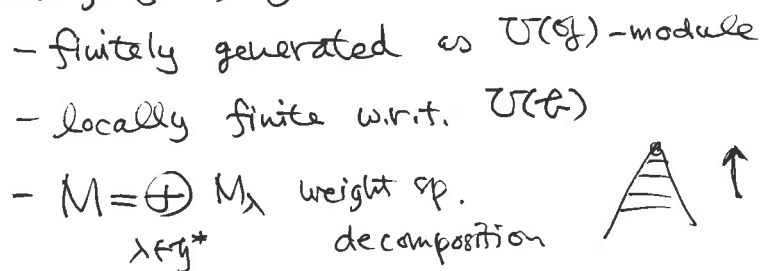 - finitely generated as U(𝔤)-module
- locally finite w.r.t. U(𝔟)
- M = ⊕ M_λ weight sp.
λ∈𝔥* decomposition